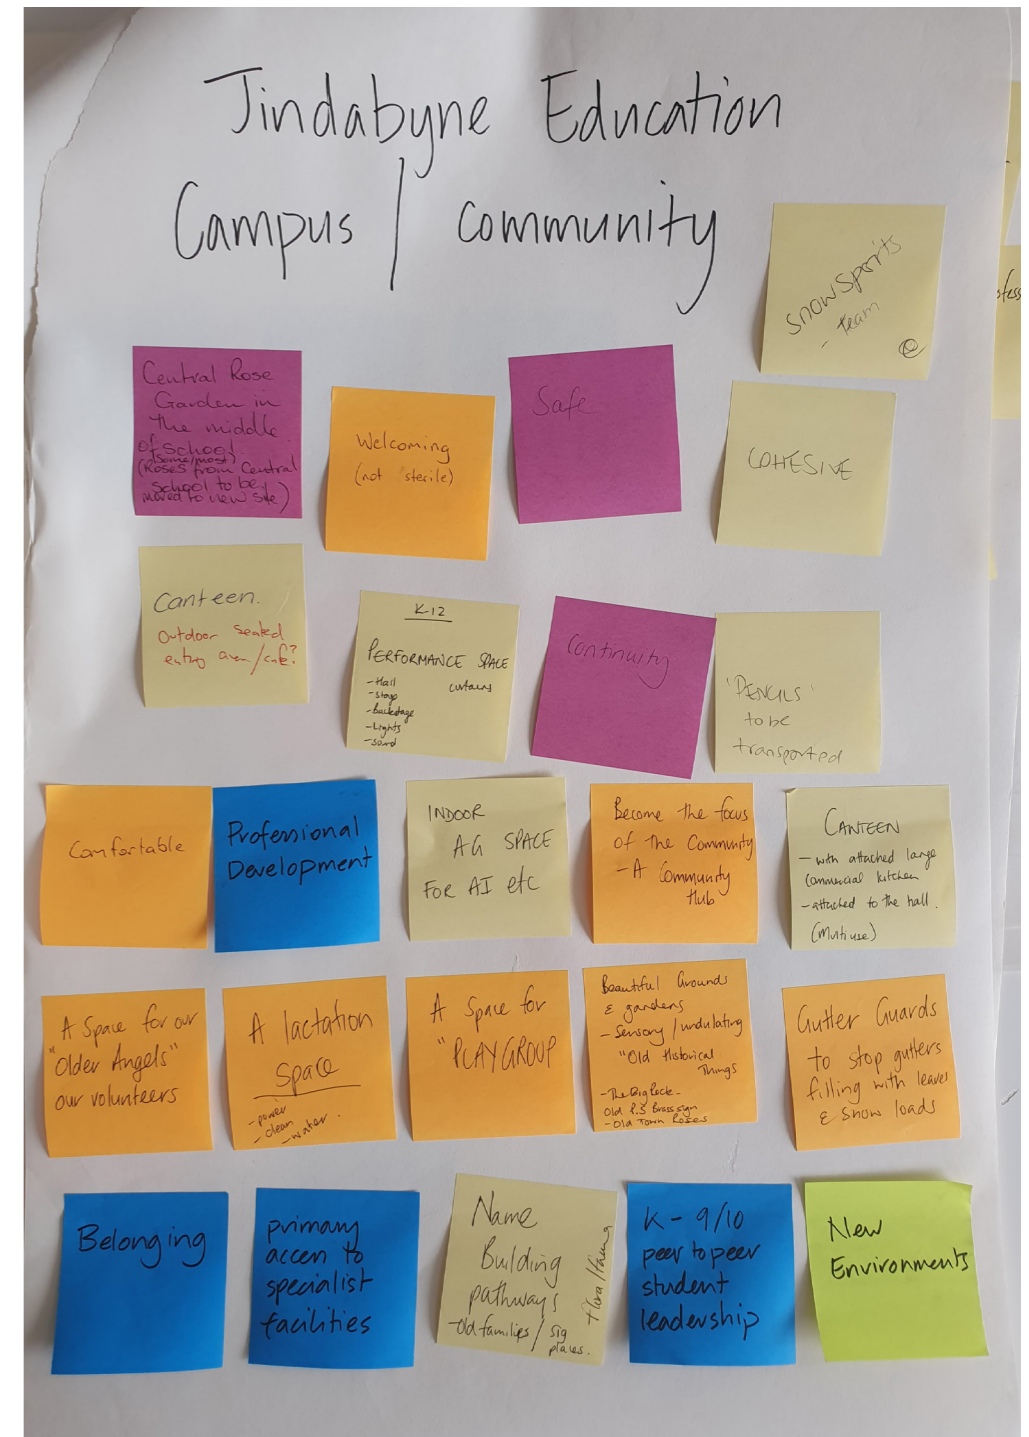 Jindabyne Education
Campus / community
Snow Sports
- team
Central Rose
Garden in
the middle
of school
(some/most)
(Roses from Central
school to be
moved to new site)
Welcoming
(not sterile)
Safe
COHESIVE
Canteen.
Outdoor seated
eating area/cafe?
K-12
PERFORMANCE SPACE
- Hall curtains
- stage
- backstage
- Lights
- sound
Continuity
'PENCILS'
to be
transported
Comfortable
Professional
Development
INDOOR
AG SPACE
FOR AI etc
Become the focus
of the Community
- A Community
Hub
CANTEEN
- with attached large
Commercial kitchen
- attached to the hall.
(Multiuse)
A Space for our
"Older Angels"
our volunteers
A lactation
Space
- power
- clean
- water.
A Space for
"PLAYGROUP
Beautiful Grounds
& gardens
- Sensory / undulating
"Old Historical
Things
- The Big Rock -
Old P.S Brass sign
- Old Town Roses
Gutter Guards
to stop gutters
filling with leaves
& snow loads
Belonging
primary
access to
specialist
facilities
Name
Building
pathways
- Old families / sig
places.
flora/fauna
K - 9/10
peer to peer
student
leadership
New
Environments